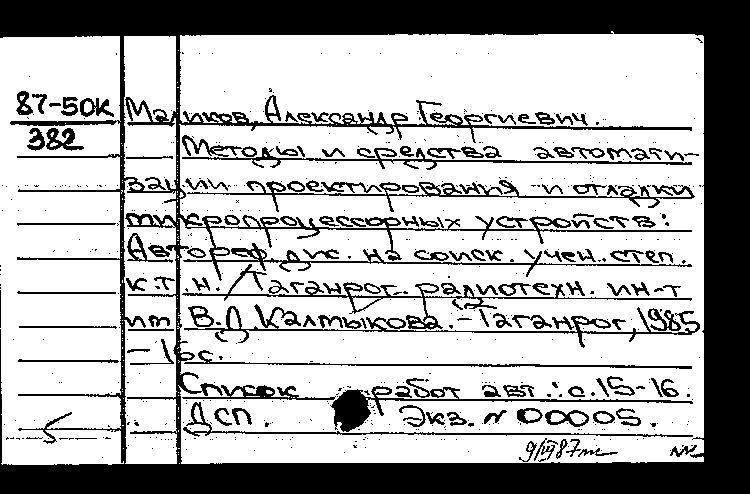 87-50К
382
Маликов, Александр Георгиевич.
Методы и средства автомати-
зации проектирования и отладки
микропроцессорных устройств:
Автореф. дис. на соиск. учен. степ.
к.т.н. / Таганрог. радиотехн. ин-т
им В.Д. Калмыкова. - Таганрог, 1985
- 16 с.
Список работ авт.: с. 15-16.
ДСП. Экз. N 00005.
5